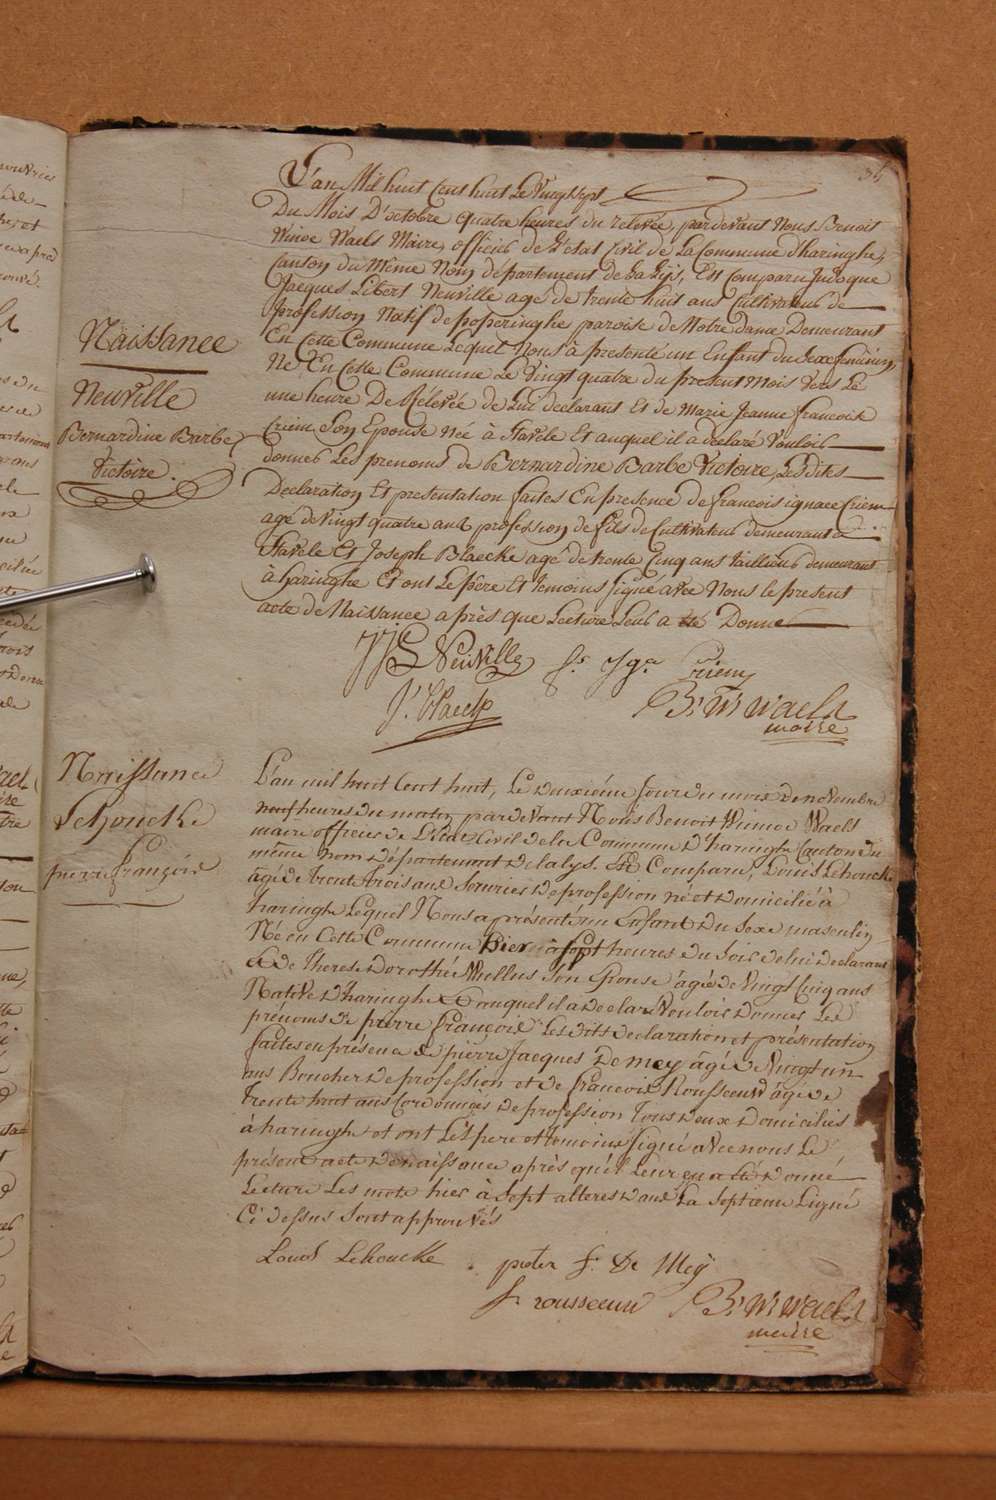 36
L'an Mil huit Cent huit Le Vingt Sept
Du Mois D'octobre quatre heures du relevée, pardevant Nous Benoit
Winoc Waels Maire, officier de L'etat Civil de La Commune d'haringhe,
Canton du Même Nom département de La Lys, Est Comparu Judoque
Jacques Libert Neuville agé de trente huit ans Cultivateur de
profession Natif de poperinghe paroise de Notre dame Demeurant
En Cette Commune Lequel Nous à presenté un Enfant du Sexe feminin,
Né En Cette Commune Le Vingt quatre du present Mois vers Le
une heure De Rélévée de Lui declarant Et de Marie Jeanne francoise
Criem Son Epouse Née à Stavele Et auquel il a declaré Vouloir
donner Les prenoms de Bernardine Barbe Victoire, Lesdits
Declaration Et presentation faites En presence de francois ignace Criem
agé de Vingt quatre ans profession de fils de Cultivateur demeurant a
Stavele Et Joseph Blaecke agé de trente Cinq ans tailleur demeurant
à haringhe Et ont Le père Et temoins signé avec Nous le present
acte de Naissance après que Lecture Leur a été Donné
Naissance
Neuville
Bernardine Barbe
Victoire.
JJL Neuville fs. Ign. Criem
J. Blaecke B: W: Waels
maire
Naissance
Lehoucke
pierre françois
L'an mil huit Cent huit, Le deuxième Jour du mois de novembre
neuf heures du matin pardevant Nous Benoit Winoc Waels
maire officier de L'état Civil de la Commune d'haringhe Canton du
même nom département de la lys. Est Comparu, Louis Lehoucke
âgé de trente trois ans Serurier de profession né et domicilié à
haringhe Lequel Nous a présenté un Enfant du Sexe masculin
Né en Cette Commune hier à sept heures du Soir de lui declarant
et de Therese Dorothé Mullus Son Epouse âgée de Vingt Cinq ans
Native d'haringhe Et auquel il a declaré Vouloir Donner Les
prénoms de pierre françois Lesdits declaration et présentation
faites en présence de pierre Jacques De mey âgé de Vingt un
ans Boucher de profession et de francois Rousseeuw âgé de
trente huit ans Cordonnier de profession Tous deux domiciliés
à haringhe et ont Les pere et temoins signé avec nous Le
présent acte de naissance après qu'il leur en a été donné
Lecture Les mots hier à Sept alterés dans La Septieme Ligne
Ci dessus Sont approuvés
Louis Lehoucke pieter J. De Mey
f rousseeuw B: W: Waels
maire